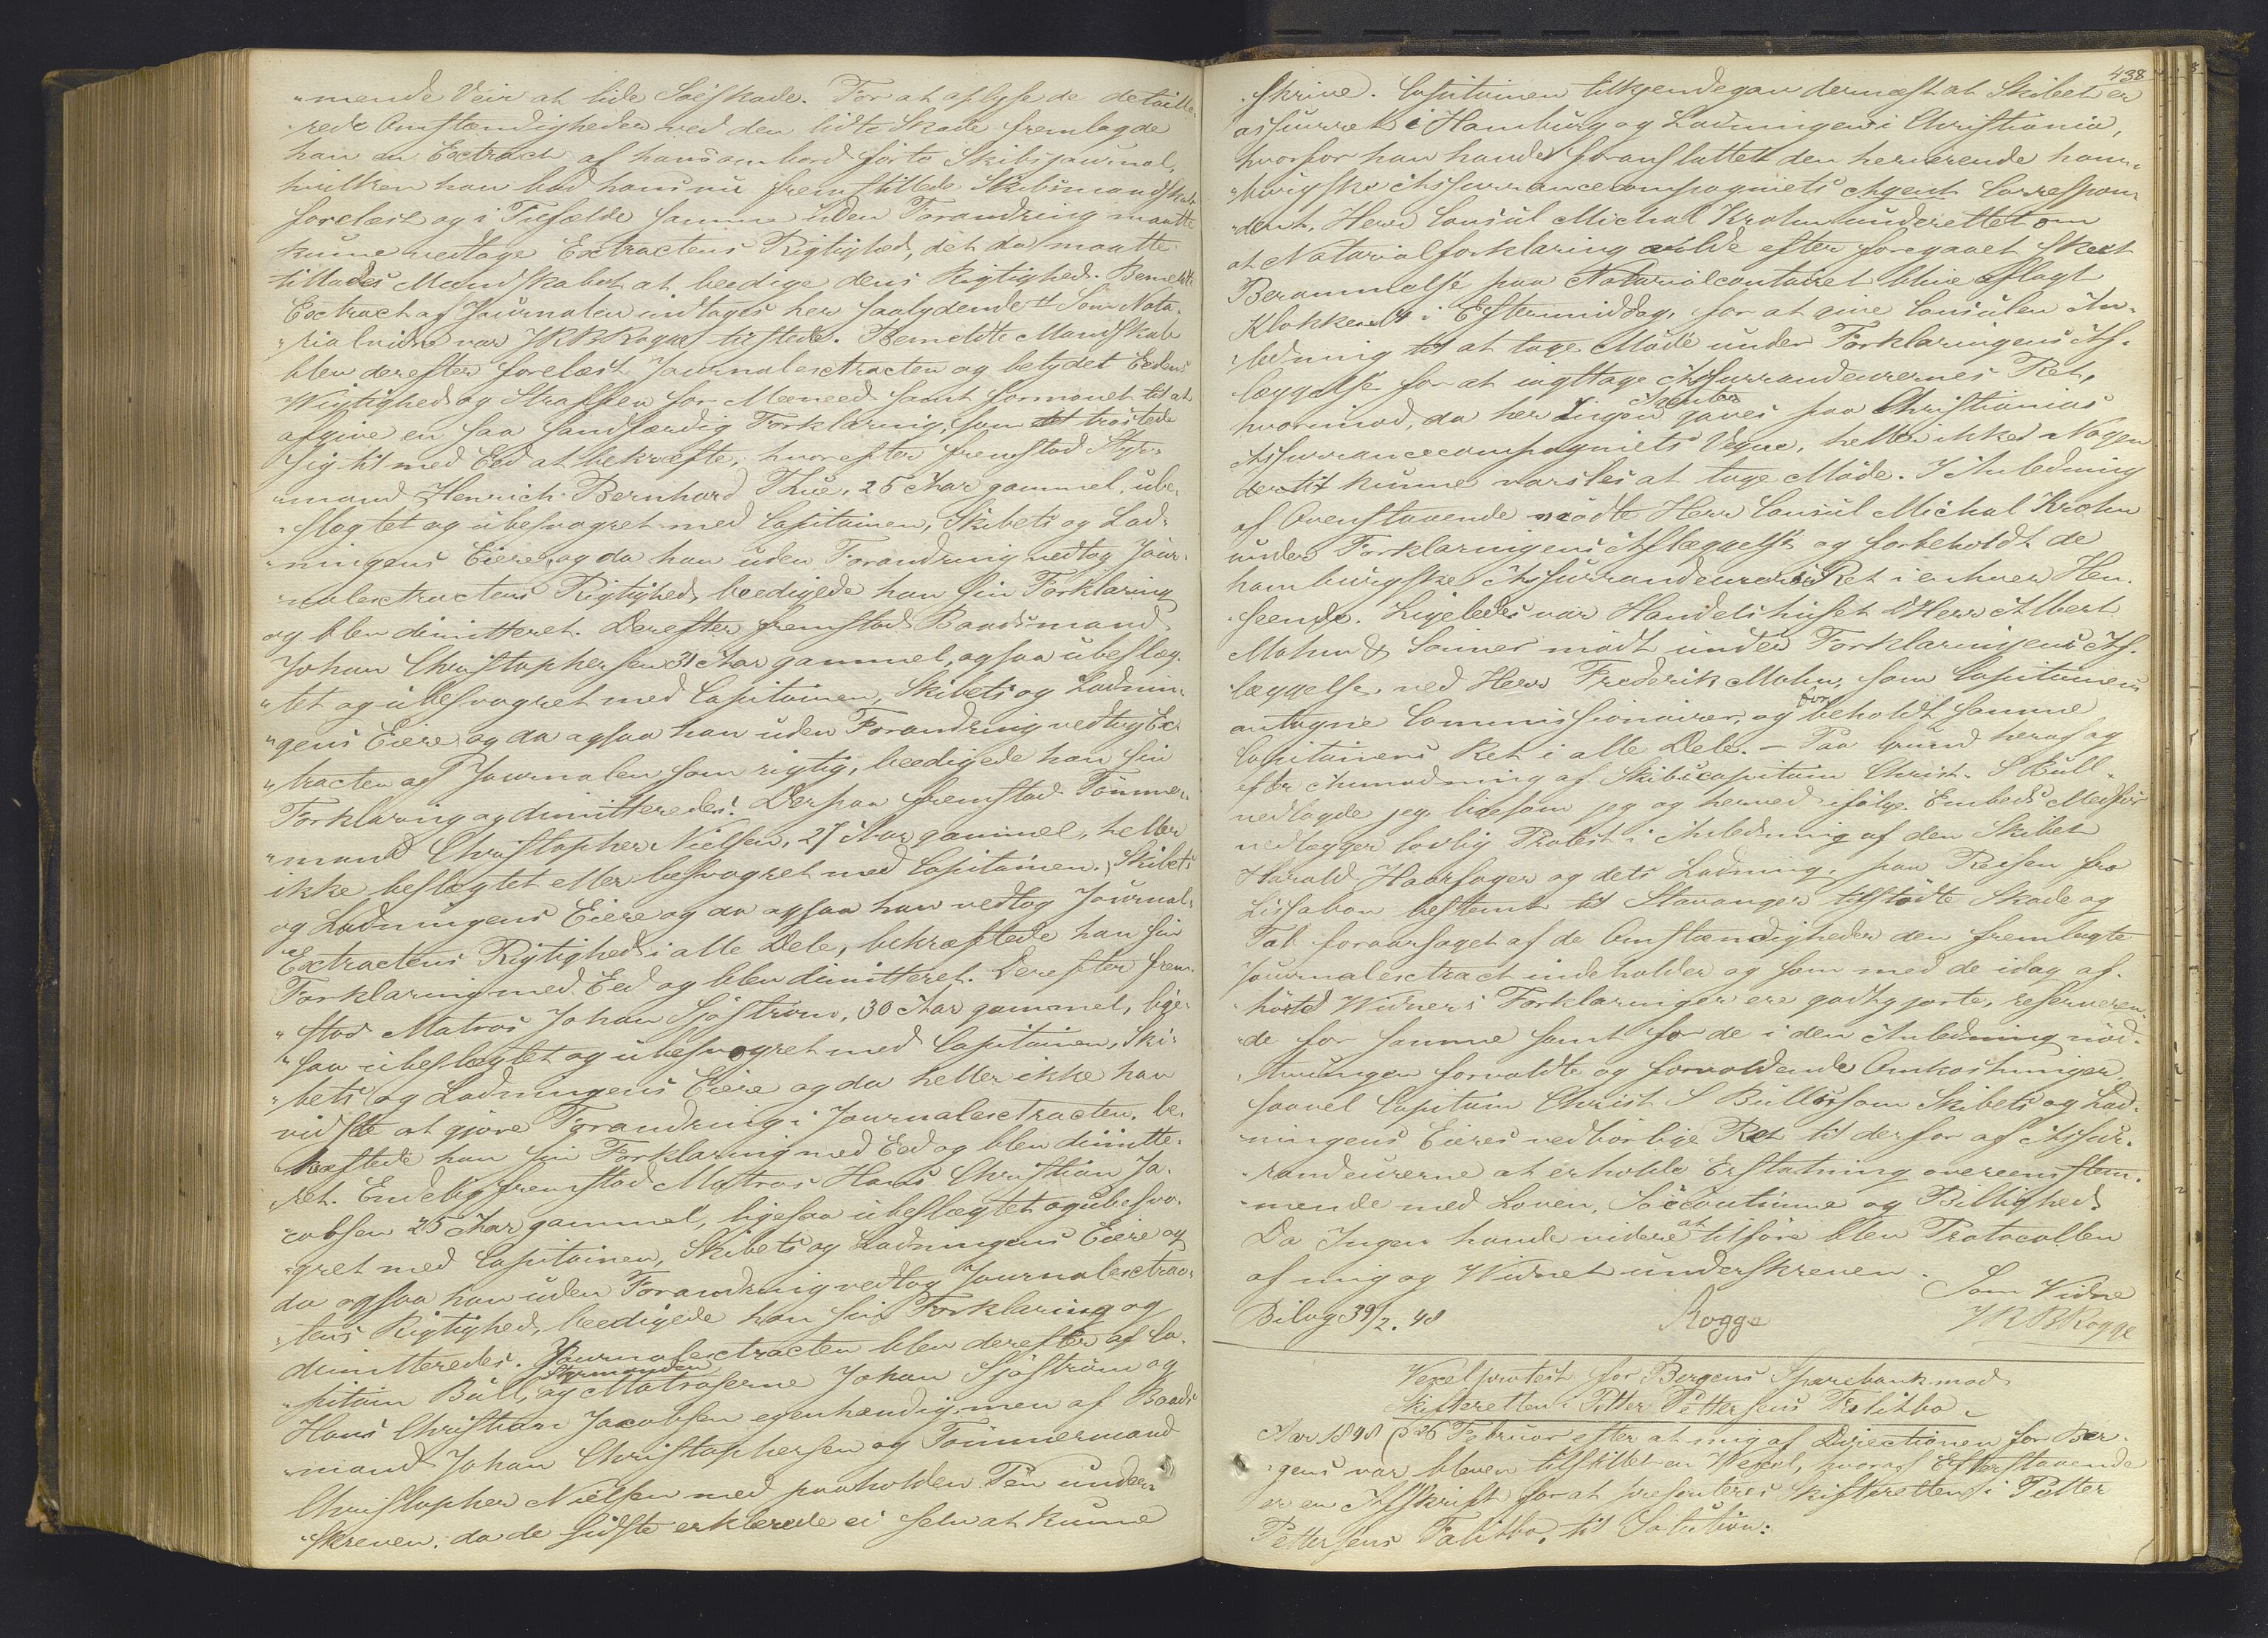 "mende Veir at lide Søeskade. For at oplyse de detaille-
"rede Omstændigheder ved den lidte Skade fremlagde
han en Extract af hans ombord førte Skibsjournal,
hvilken han bad hans nu fremstillede Skibsmandskab
forelæst og i Tilfælde samme uden Forandring maatte
kunne vedtage Extractens Rigtighed, det da maatte
tillades Mandskabet at beedige dens Rigtighed. Bemeldte
Extract af Journalen indtages her saalydende # Som Nota-
"rialvidne var J R B Rogge tilstede. Bemeldte Mandskab
blev derefter forelæst Journalextracten og betydet Eedens
Vigtighed og Straffen for Meeneed samt formanet til at
afgive en saa sandfærdig Forklaring, som det trøstede
sig til med Eed at bekræfte; hvorefter fremstod Styr-
"mand Henrich Bernhard Thue, 25 Aar gammel, ube-
"slægtet og ubesvogret med Capitainen, Skibets og Lad-
"ningens Eiere, og da han uden Forandring vedtog Jour-
"nalextractens Rigtighed, beedigede han sin Forklaring
og blev dimitteret. Derefter fremstod Baadsmand
Johan Christophersen 31 Aar gammel, ogsaa ubeslæg-
"tet og ubesvogret med Capitainen, Skibets og Ladnin-
"gens Eiere og da ogsaa han uden Forandring vedtog Ex-
"tracten af Journalen som rigtig, beedigede han sin
Forklaring og dimitteredes. Derpaa fremstod Tømmer-
"mand Christopher Nielsen, 27 Aar gammel, heller
ikke beslægtet eller besvogret med Capitainen, Skibets
og Ladningens Eiere og da ogsaa han vedtog Journal-
Extractens Rigtighed i alle Dele, bekræftede han sin
Forklaring med Eed og blev dimitteret. Derefter frem-
"stod Matros Johan Sjøstrøm, 30 Aar gammel, lige-
"saa ubeslægtet og ubesvogret med Capitainen, Ski-
"bets og Ladningens Eiere og da heller ikke han
vidste at gjøre Forandring i Journalextracten, be-
kræftede han sin Forklaring med Eed og blev dimitte-
"ret. Endelig fremstod Matros Hans Christian Ja-
"cobsen 25 Aar gammel, ligesaa ubeslægtet og ubesvo-
"gret med Capitainen, Skibets og Ladningens Eiere og
da ogsaa han uden Forandring vedtog Journalextrac-
"tens Rigtighed, beedigede han sin Forklaring og
dimitteredes. Journalextracten blev derefter af Ca-
"pitain Bull, Styrmanden og Matroserne Johan Sjøstrøm og
Hans Christian Jacobsen egenhændig, men af Baads-
"mand Johan Christophersen og Tømmermand
Christopher Nielsen med paaholden Pen under-
"skreven, da de sidste erklærede ei selv at kunne
438
"skrive. Capitainen tilkjendegav dernæst at Skibet er
assurret i Hamburg og Ladningen i Christiania,
hvorfor han havde foranstaltet den herværende ham-
"burgske Assurancecompagniets Agent Correspon-
"dent, Herr Consul Michal Krohn underettet om
at Notarialforklaring vilde efter foregaaet skeet
Berammelse paa Notarialcontoiret blive aflagt
Klokken 4 i Eftermiddag, for at give Consulen An-
"ledning til at tage Møde under Forklaringens Af-
læggelse for at iagttage Assurandeurernes Ret,
hvorimod, da her Ingen Agenter gaves paa Christianias
Assurancecompagniets Vegne, heller ikke Nogen
dertil kunne varsles at tage Møde. I Anledning
af Ovenstaaende mødte Herr Consul Michal Krohn
under Forklaringens Aflæggelse og forbeholdt de
hamburgske Assurandeurers Ret i enhver Hen-
"seende. Ligeledes var Handelshuset DHerr Albert
Mohn & Sønner mødt under Forklaringens Af-
læggelse ved Herr Frederik Mohn, som Capitainens
antagne Commissionairer, og forbeholdt samme
Capitainens Ret i alle Dele. – Paa Grund heraf og
efter Anmodning af Skibscapitain Christ. S Bull
nedlagde jeg, ligesom jeg og herved ifølge Embeds Medfør
nedlægger lovlig Protest i Anledning af den Skibet
Harald Haarfager og dets Ladning, paa Reisen fra
Lissabon bestemt til Stavanger tilstødte Skade og
Tab foraarsaget af de Omstændigheder den fremlagte
Journalextract indeholder og som med de idag af-
"hørte Vidners Forklaringer ere godtgjorte, reserveren-
"de for samme samt for de i den Anledning nød-
"tvungen forvoldte og forvoldende Omkostninger
saavel Capitain Christ. S Bull som Skibets og Lad-
"ningens Eieres vedbørlige Ret til derfor af Assu-
"randeurerne at erholde Erstatning overeensstem-
"mende med Loven, Søecoutume og Billighed.
Da Ingen havde videre at tilføre blev Protocollen
af mig og Vidnet underskreven.
Som Vidne
Bilag 39/2. 48 Rogge J R B Rogge
Vexelprotest for Bergens Sparebank mod
Skifteretten i Petter Pettersens Falitbo.
Aar 1848 d 26 Februar efter at mig af Directionen for Ber-
"gens var bleven tilstillet en Vexel, hvoraf Efterstaaende
er en Afskrift for at presenteres Skifteretten i Petter
Pettersens Falitbo, til Solution: